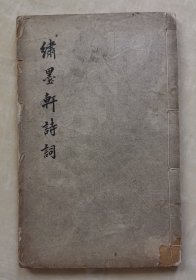 繡墨軒詩詞